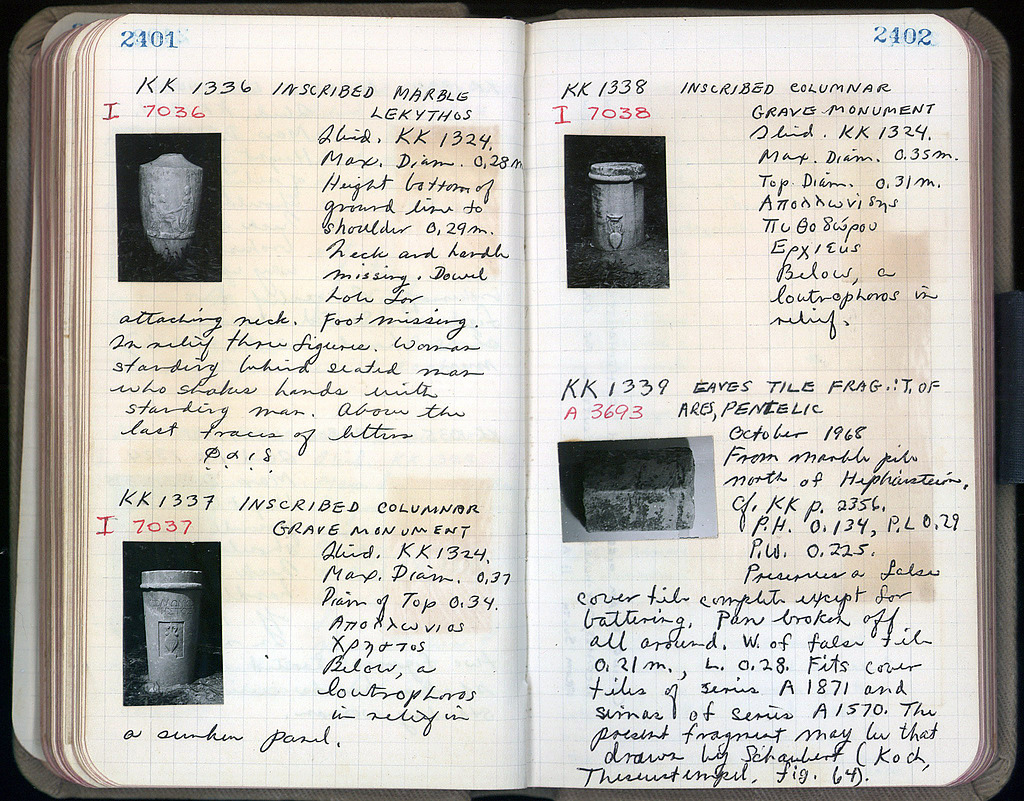 2401
KK 1336 INSCRIBED MARBLE
I 7036 LEKYTHOS
Ibid. KK 1324.
Max. Diam. 0.28m
Height bottom of
ground line to
shoulder 0.29m.
Neck and handle
missing. Dowel
hole for
attaching neck. Foot missing.
In relief three figures. Woman
standing behind seated man
who shakes hands with
standing man. Above the
last traces of letters
KK 1337 INSCRIBED COLUMNAR
I 7037 GRAVE MONUMENT
Ibid. KK 1324.
Max. Diam. 0.37
Diam of Top 0.34.
Απολλωνιος
Χρηστος
Below, a
loutrophoros
in relief in
a sunken panel.
2402
KK 1338 INSCRIBED COLUMNAR
I 7038 GRAVE MONUMENT
Ibid. KK 1324.
Max. Diam. 0.35m.
Top Diam. 0.31m.
Απολλωνιδης
Πυθοδώρου
Ερχιευς
Below, a
loutrophoros in
relief.
KK 1339 EAVES TILE FRAG. :T. OF
A 3693 ARES, PENTELIC
October 1968
From marble pile
north of Hephaisteion.
Cf. KK p. 2356.
P.H. 0.134, P.L 0.29
P.W. 0.225.
Preserves a false
cover tile complete except for
battering. Pan broken off
all around. W. of false tile
0.21m., L. 0.28. Fits cover
tiles of series A 1871 and
simas of series A 1570. The
present fragment may be that
drawn by Schaubert (Koch,
Theseustempel, fig. 64).